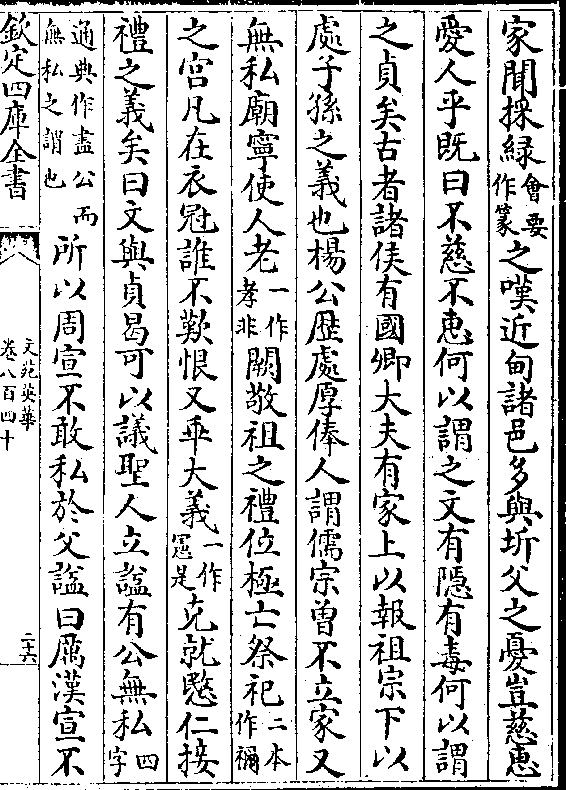 家聞採緑會要作篆之嘆近甸諸邑多與圻父之憂豈慈惠
愛人乎既曰不慈不惠何以謂之文有隱有毒何以謂
之貞矣古者諸侯有國卿大夫有家上以報祖宗下以
處子孫之義也楊公歴處厚俸人謂儒宗曽不立家又
無私廟寧使人老一作孝非闕敬祖之禮位極亡祭祀二本作禰
之宫凡在衣冠誰不歎恨又乖大義一作寃是克就愍仁接
禮之義矣曰文與貞曷可以議聖人立諡有公無私四字
通典作盡公而無私之謂也所以周宣不敢私於父諡曰厲漢宣不
欽定四庫全書
文苑英華
卷八百四十
二十六